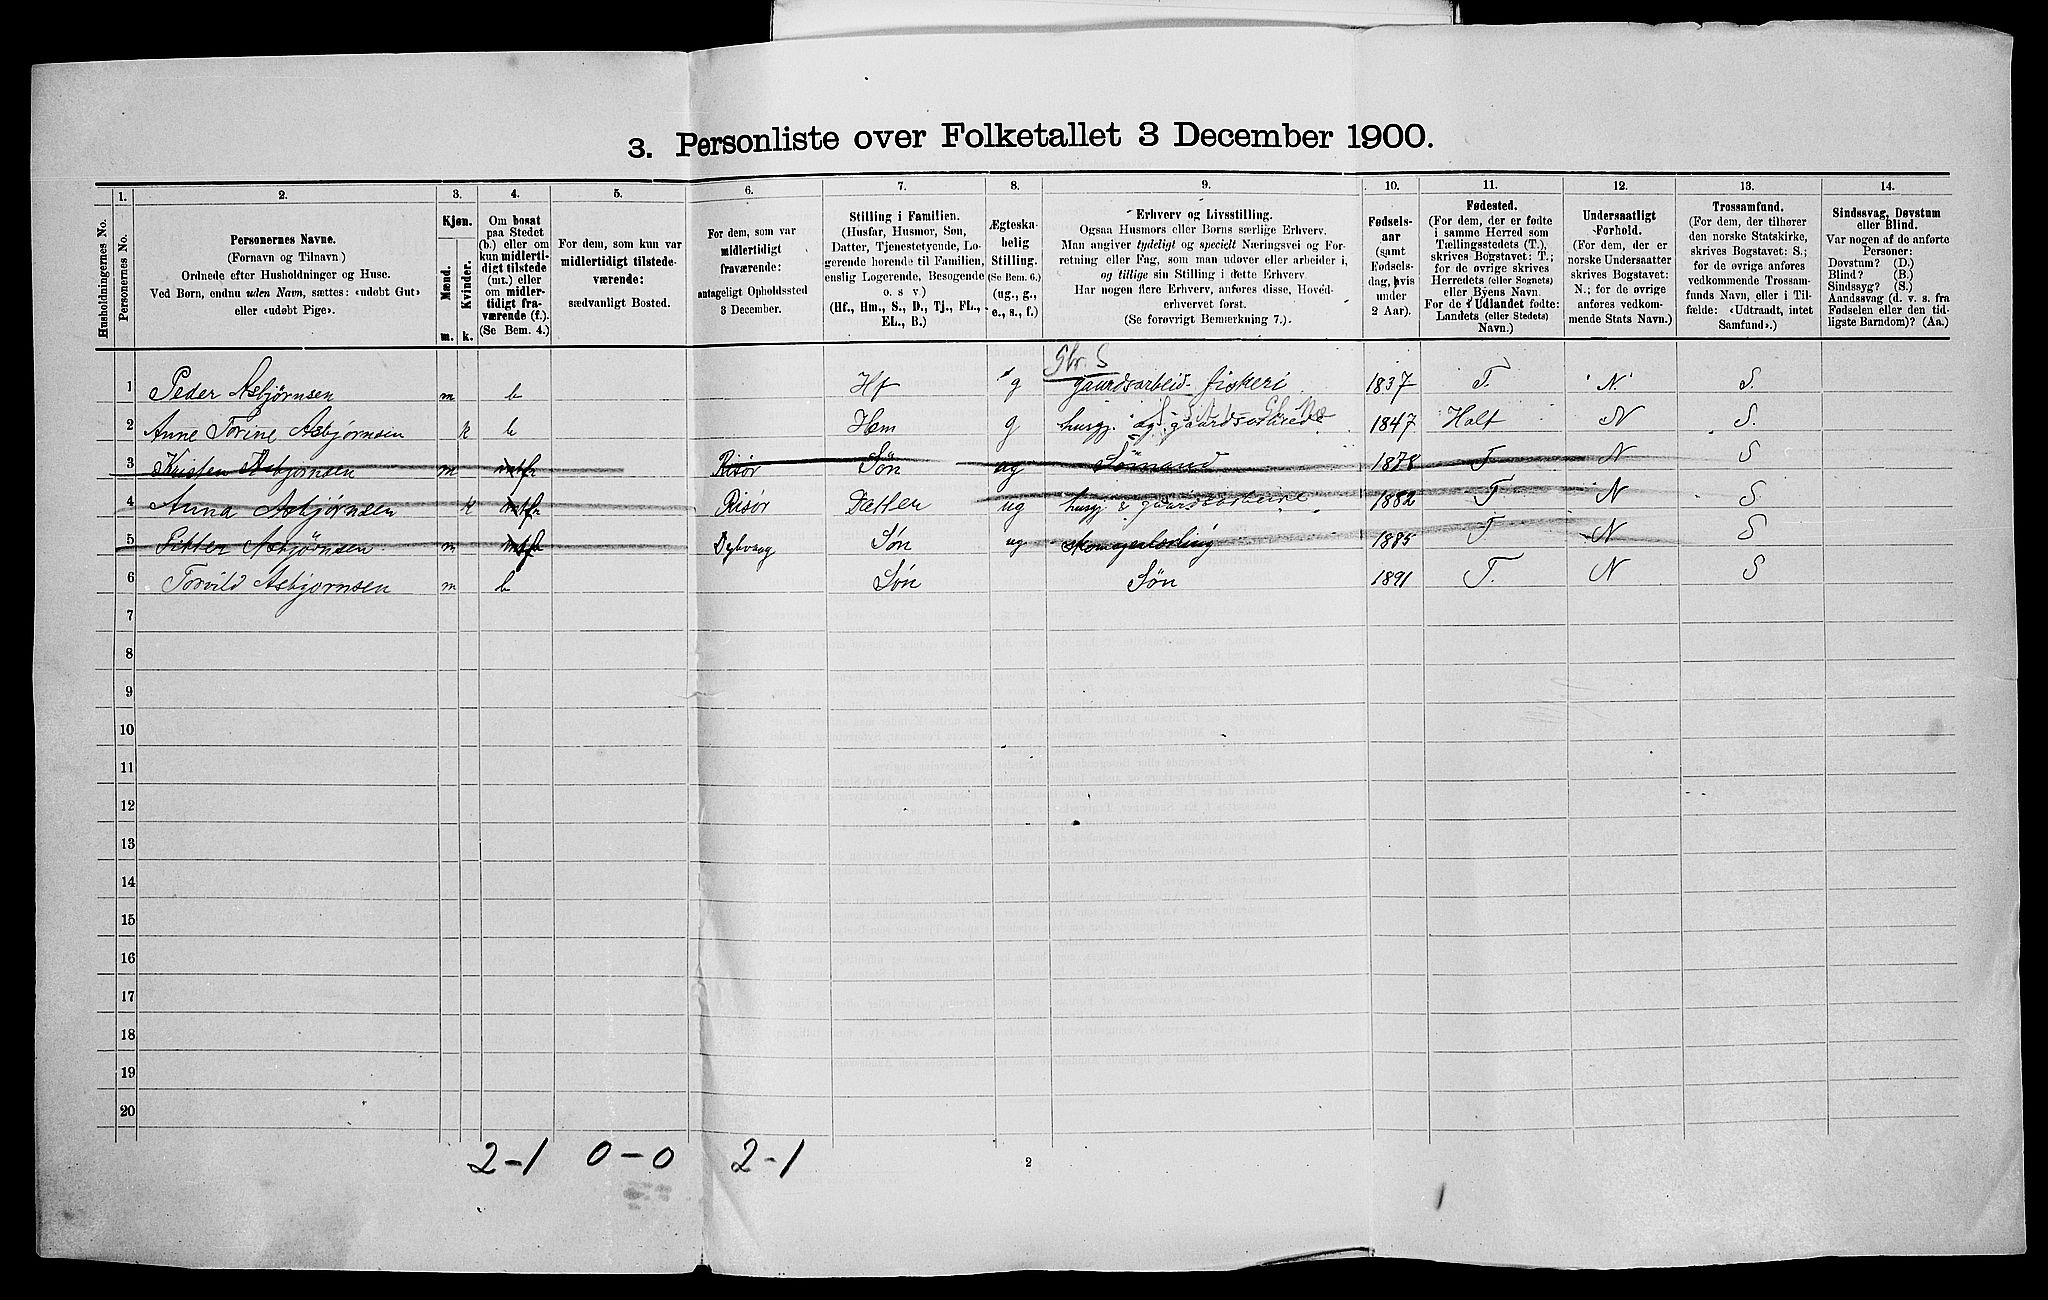 3. Personliste over Folketallet 3 December 1900.
1. 2. 3. 4. 5. 6. 7. 8. 9. 10. 11. 12. 13. 14.
Husholdningernes No.
Personernes No.
Personernes Navne.
(Fornavn og Tilnavn)
Ordnede efter Husholdninger og Huse.
Ved Børn, endnu uden Navn, sættes: «udøbt Gut»
eller «udøbt Pige».
Kjøn.
Mænd.
Kvinder.
m. k.
Om bosat
paa Stedet
(b.) eller om
kun midlerti-
digt tilstede
(mt.) eller
om midler-
tidigt fra-
værende (f.).
(Se Bem. 4.)
For dem, som kun var
midlertidigt tilstede-
værende:
sædvanligt Bosted.
For dem, som var
midlertidigt
fraværende:
antageligt Opholdssted
3 December.
Stilling i Familien.
(Husfar, Husmor, Søn,
Datter, Tjenestetyende, Lo-
gerende hørende til Familien,
enslig Logerende, Besøgende
o. s v)
(Hf., Hm., S., D., Tj., FL.,
EL., B.)
Ægteska-
belig
Stilling.
(Se Bem. 6.)
(ug., g.,
e., s., f.)
Erhverv og Livsstilling.
Ogsaa Husmors eller Børns særlige Erhverv.
Man angiver tydeligt og specielt Næringsvei og For-
retning eller Fag, som man udøver eller arbeider i,
og tillige sin Stilling i dette Erhverv.
Har nogen flere Erhverv, anføres disse, Hoved-
erhvervet først.
(Se forøvrigt Bemærkning 7.)
Fødsels-
aar
(samt
Fødsels-
dag, hvis
under
2 Aar).
Fødested.
(For dem, der er fødte
i samme Herred som
Tællingsstedets (T.),
skrives Bogstavet: T.;
for de øvrige skrives
Herredets (eller Sognets)
eller Byens Navn.
For de i Udlandet fødte:
Landets (eller Stedets)
Navn.)
Undersaatligt
Forhold.
(For dem, der er
norske Undersaatter
skrives Bogstavet:
N.; for de øvrige
anføres vedkom-
mende Stats Navn.)
Trossamfund.
(For dem, der tilhører
den norske Statskirke,
skrives Bogstavet: S.;
for de øvrige anføres
vedkommende Trossam-
funds Navn, eller i Til-
fælde: «Udtraadt, intet
Samfund».)
Sindssvag, Døvstum
eller Blind.
Var nogen af de anførte
Personer:
Døvstum? (D.)
Blind? (B.)
Sindssyg? (S.)
Aandssvag (d. v. s. fra
Fødselen eller den tid-
ligste Barndom)? (Aa.)
Gbr. S
1 Peder Asbjørnsen m b Hf g gaardsarbeid fiskeri 1837 T. N S.
2 Anne Torine Asbjørnsen k b Hem g husgj. og gaardsarbeide 1847 Holt N S.
3 Kristen Asbjørnsen m mt f Risør Søn ug Sømand 1878 T N S
4 Anna Asbjørnsen k mt f Risør Datter ug husgj & gaardsarbeide 1882 T N S
5 Pitter Asbjørnsen m mt f Dybvaag Søn ug skomagerlærling 1885 T N S
6 Torvild Asbjørnsen m b Søn Søn 1891 T. N S
7
8
9
10
11
12
13
14
15
16
17
18
19
20
2-1 0-0 2-1
2